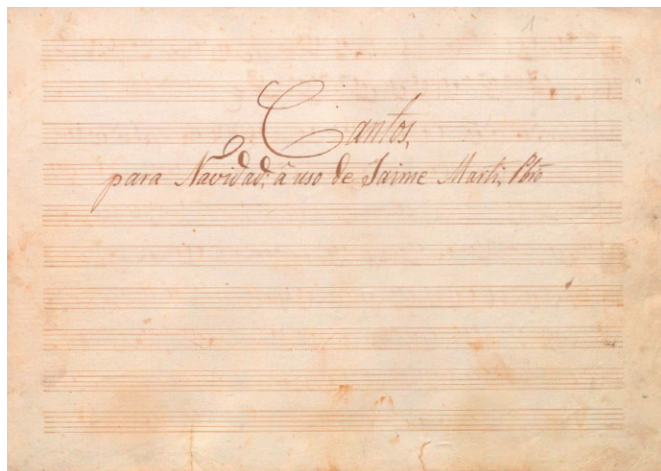 1
Cantos,
para Navidad, â uso de Jaime Marti, Pbro